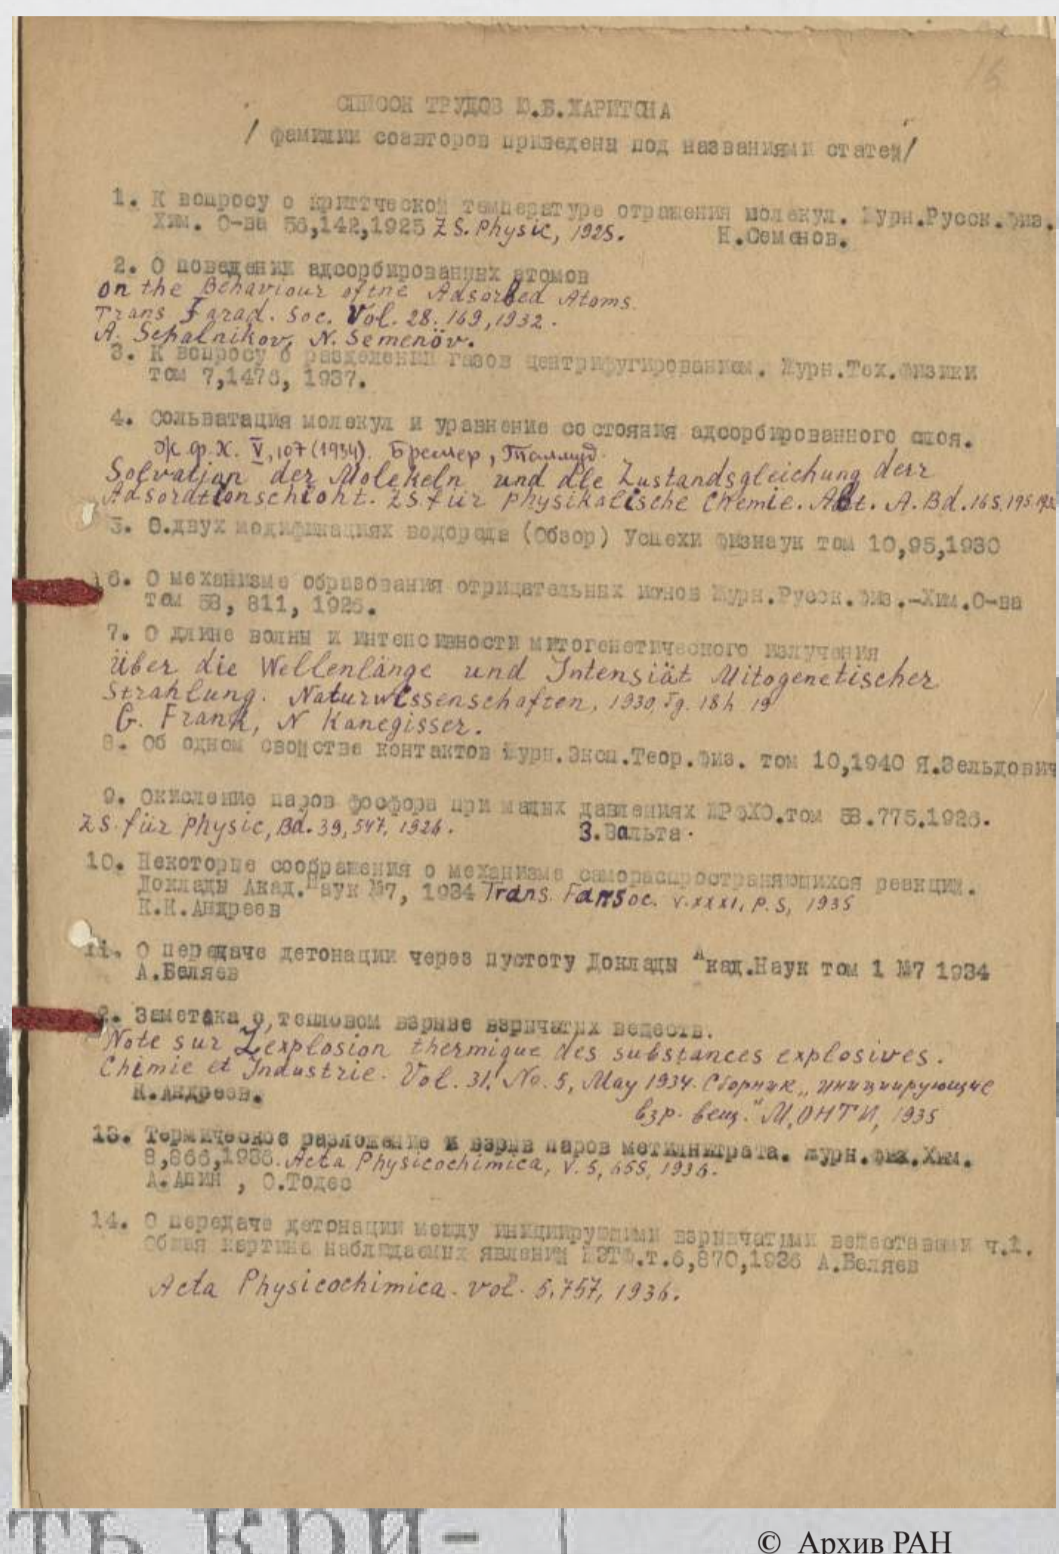 16
СПИСОК ТРУДОВ Ю.Б.ХАРИТОНА
/ фамилии соавторов приведены под названиями статей/
1. К вопросу о криттческой температуре отражения молекул. Журн.Русск.физ.
Хим. О-ва 56,142,1925 ZS. Physic, 1925. Н.Семенов.
2. О поведении адсорбированных атомов
On the Behaviour of the Adsorbed Atoms.
Trans Farad. Soc. Vol. 28. 169, 1932.
A. Schalnikov, N. Semenöv.
3. К вопросу о разделении газов центрифугированием. Журн.Тех.Физики
том 7,1476, 1937.
4. Сольватация молекул и уравнение состояния адсорбированного слоя.
Ж.Ф.Х. V, 107 (1934). Бремер,
Solvation der Molekeln und die Zustandsgleichung derr
Adsorationschicht. ZS. für physikalische Chemie. Abt. A. Bd. 165, 195
5. О.двух модификациях водорода (Обзор) Успехи физнаук том 10,95,1930
6. О механизме образования отрицательных ионов Журн.Русск.Физ.-Хим.О-ва
том 58, 811, 1926.
7. О длине волны и интенсивности митогенетического излучения
Über die Wellenlänge und Intensiät Mitogenetischer
Strahlung. Naturwissenschaften, 1930, Jg. 18 h. 19
G. Frank, N Kanegisser.
8. Об одном свойстве контактов Журн.Эксп.Теор.Физ. том 10,1940 Я.Зельдович
9. Окисление паров фосфора при малых давлениях ЖРФХО.том 58.775.1926.
ZS. für Physic, Bd. 39, 547, 1926. З.Вальта.
10. Некоторые соображения о механизме самораспространяющихся реакции.
Доклады Акад.Наук №7, 1934 Trans. Far.Soc. v. XXXI, p. 5, 1935
К.К.Андреев
11. О передаче детонации через пустоту Доклады Акад.Наук том 1 №7 1934
А.Беляев
2. Заметака о, тепловом взрыве взрычатых веществ.
Note sur L'explosion thermique des substances explosives.
Chimie et Industrie. Vol. 31, No. 5, May 1934. Сборник „инициирующие
К.Андреев. взр. вещ." М, ОНТИ, 1935
13. Термическое разложение и взрыв паров метилнитрата. Журн.физ.Хим.
8,866,1936. Acta Physicochimica, v. 5, 655, 1936.
А.Апин , О.Тодес
14. О передаче детонации между инициирующими взрывчатыми веществами ч.1.
Общая картина наблюдаемых явлений ЖЭТФ.т.6,870,1936 А.Беляев
Acta Physicochimica. vol. 5, 757, 1936.
ть кри-
© Архив РАН